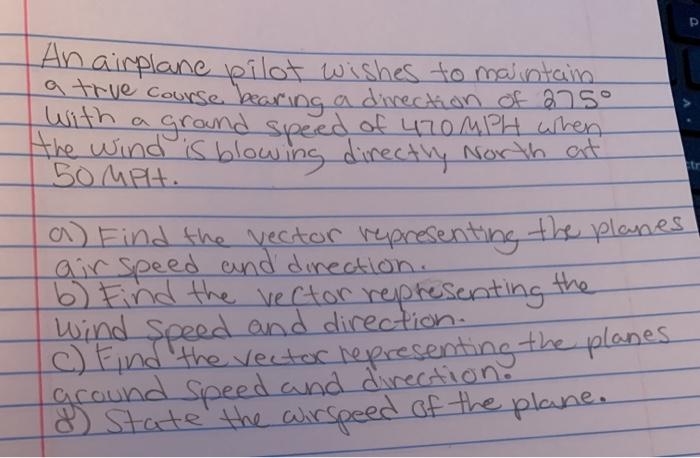 An airplane pilot wishes to maintain
a true course bearing a direction of 275°
with a ground speed of 470 MPH when
the wind is blowing directly North at
50 MPH.
a) Find the vector representing the planes
air speed and direction.
b) Find the vector representing the
wind speed and direction.
c) Find the vector representing the planes
ground speed and direction.
d) State the airspeed of the plane.
P